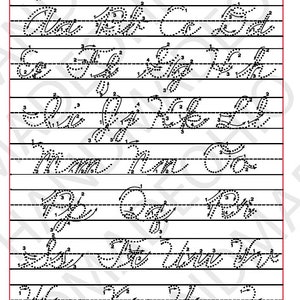 Aa Bb Cc Dd
Ee Ff Gg Hh
Ii Jj Kk Ll
Mm Nn Oo
Pp Qq Rr
Ss Tt Uu Vv